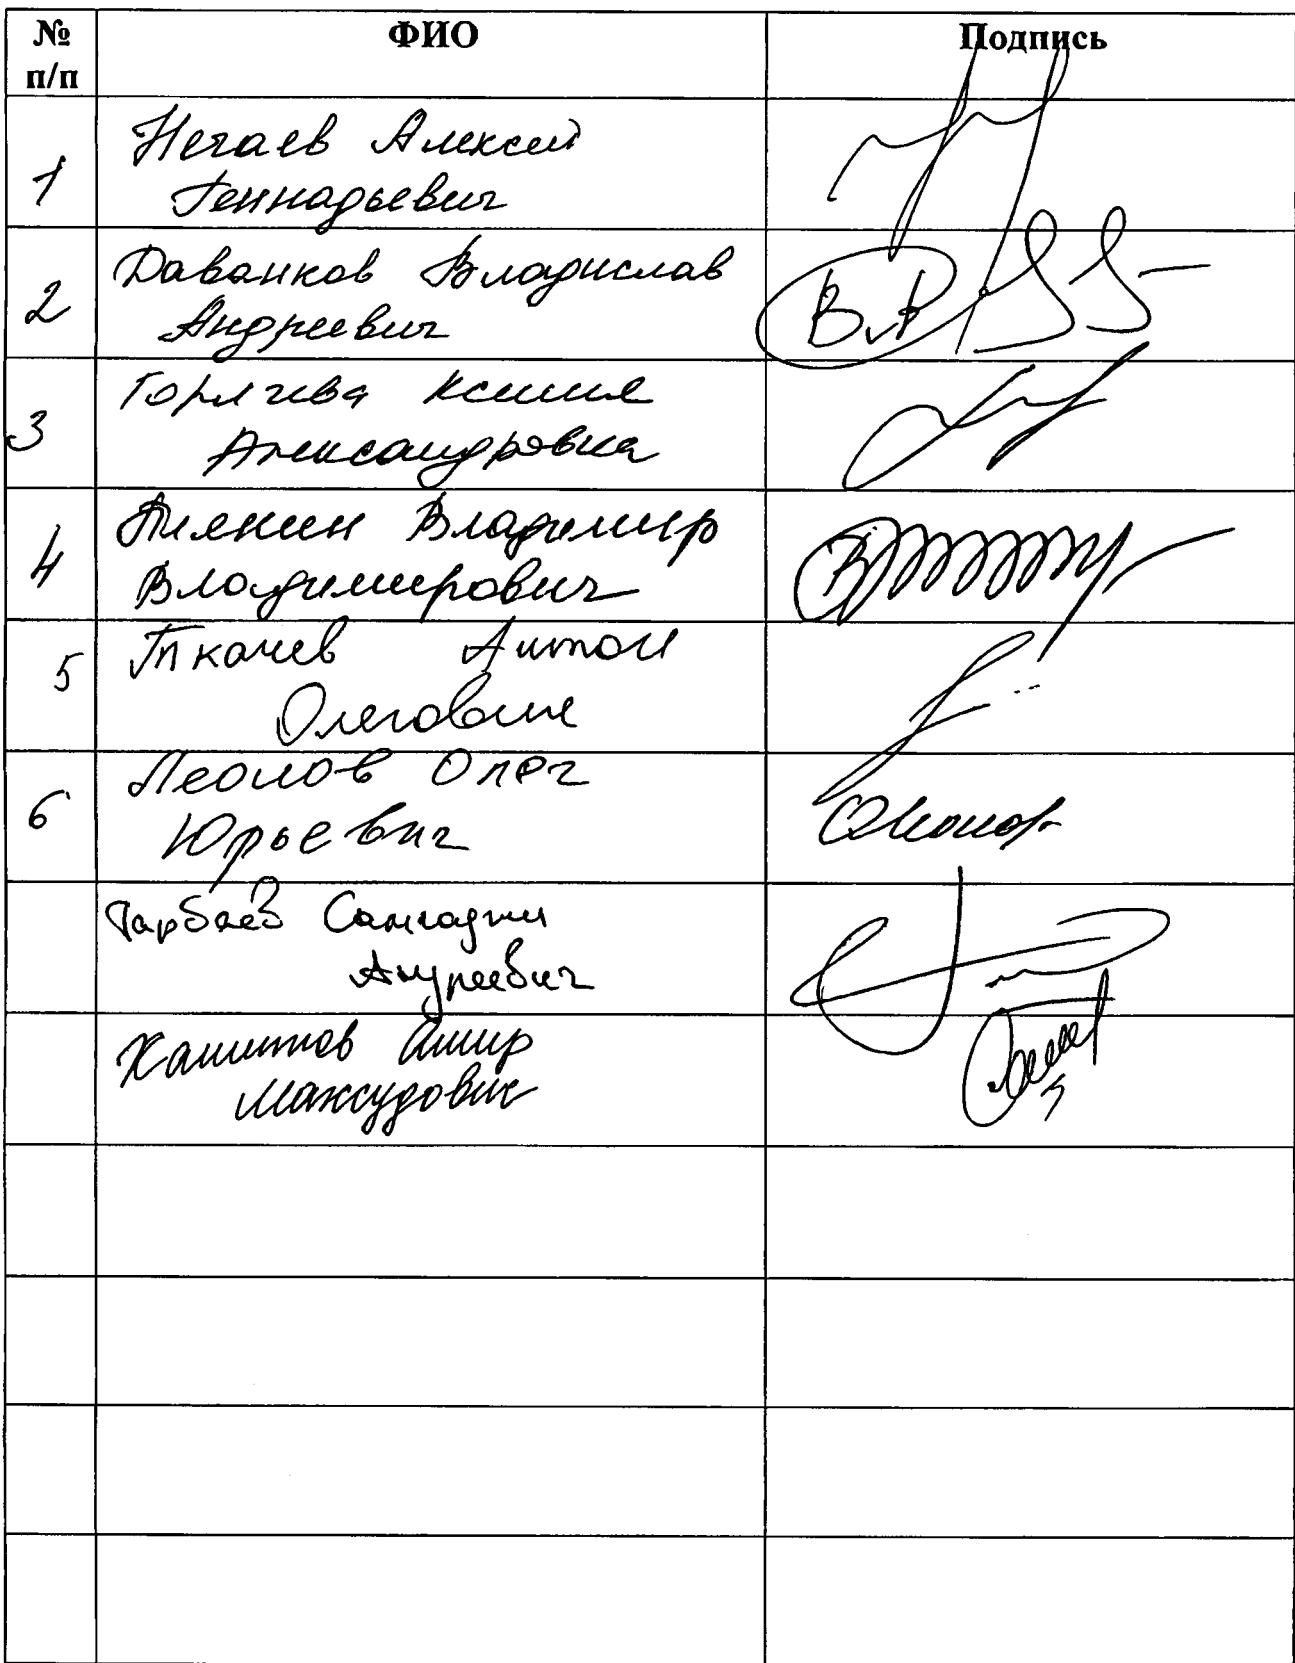 № п/п
ФИО
Подпись
1
Нечаев Алексей
Геннадьевич
2
Даванков Владислав
Андреевич
3
Горячева Ксения
Александровна
4
Плякин Владимир
Владимирович
5
Ткачев Антон
Олегович
6
Леонов Олег
Юрьевич
Тарбаев Сангаджи
Андреевич
Хамитов Амир
Максудович